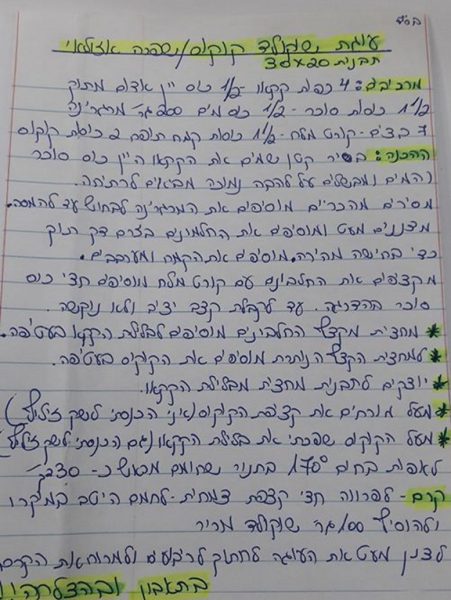 בס״ד
עוגת שוקולד קוקוס/שפרה אזולאי
תבנית 20 על 30
מרכיבים: 4 כפות קקאו - 1/2 כוס יין אדום מתוק
1 1/2 כוסות סוכר - 1/2 כוס מים 200 גר׳ מרגרינה
7 ביצים - קורט מלח - 1 1/2 כוסות קמח תופח 2 כוסות קוקוס
ההכנה: בסיר קטן שמים את הקקאו היין כוס סוכר
והמים ומבשלים על להבה נמוכה מביאים לרתיחה.
מסירים מהכריים מוסיפים את המרגרינה לבחוש עד להמסה.
מצננים מעט ומוסיפים את החלמונים בזרם דק תוך
כדי בחישה מהירה. מוסיפים את הקמח ומערבבים.
מקציפים את החלבונים עם קורט מלח מוסיפים חצי כוס
סוכר בהדרגה. עד לקבלת קצף יציב ולא נוקשה.
* מחצית מקצף החלבונים מוסיפים לבלילת הקקאו בעטיפה.
* למחצית הקצף הנותרת מוסיפים את הקוקוס בעטיפה.
* יוצקים לתבנית מחצית מבלילת הקקאו.
* מעל מורחים את קציפת הקוקוס (אני הכנסתי לשק זילוף)
* מעל הקוקוס שפכתי את בלילת הקקאו (גם הכנסתי לשק זילוף)
לאפות בחום 170° בתנור שחומם מראש כ- 30ד׳
קרם - לפרווה חצי קצפת צמחית - לחמם היטב במיקרו
ולהוסיף 100 גר׳ שוקולד מריר
לצנן מעט את העוגה לחתוך לריבועים ולמרוח את הקרם
בתאבון ובהצלחה